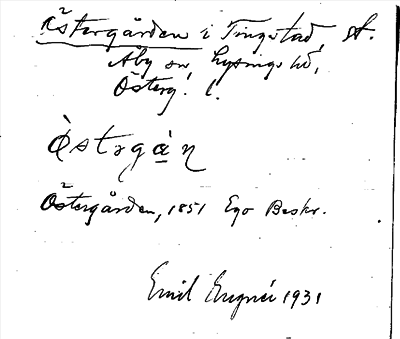 Östergården i Tingstad, A.
Åby sn, Lysings hd,
Österg. l.
Östərgà̱ɳ
Östergården, 1851 Ego Beskr.
Emil Engnér 1931